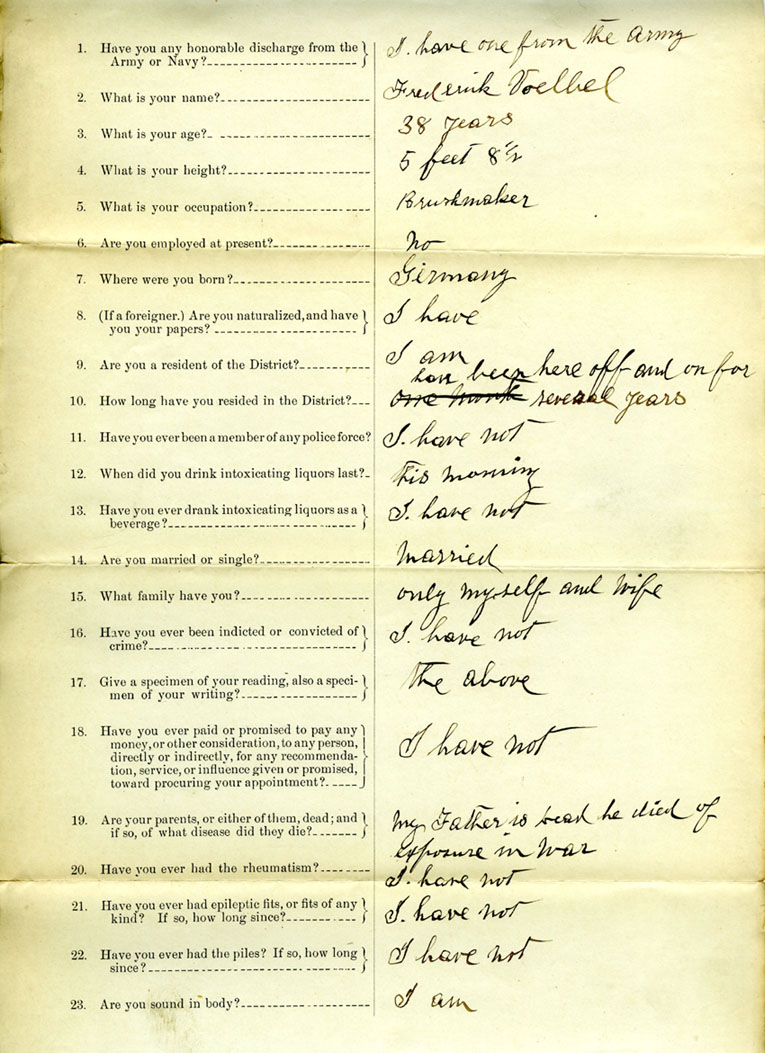 1. Have you any honorable discharge from the Army or Navy? I. have one from the Army
2. What is your name? Frederick Voelbel
3. What is your age? 38 years
4. What is your height? 5 feet 8 1/2
5. What is your occupation? Brushmaker
6. Are you employed at present? No
7. Where were you born? Germany
8. (If a foreigner.) Are you naturalized, and have you your papers? I have
9. Are you a resident of the District? I am
10. How long have you resided in the District? have been here off and on for
one month several years
11. Have you ever been a member of any police force? I. have not
12. When did you drink intoxicating liquors last? this morning
13. Have you ever drank intoxicating liquors as a beverage? I. have not
14. Are you married or single? Married
15. What family have you? only myself and Wife
16. Have you ever been indicted or convicted of crime? I. have not
17. Give a specimen of your reading, also a specimen of your writing? the above
18. Have you ever paid or promised to pay any
money, or other consideration, to any person,
directly or indirectly, for any recommenda-
tion, service, or influence given or promised,
toward procuring your appointment? I have not
19. Are your parents, or either of them, dead; and if so, of what disease did they die? My Father is dead he died of
exposure in War
20. Have you ever had the rheumatism? I. have not
21. Have you ever had epileptic fits, or fits of any kind? If so, how long since? I. have not
22. Have you ever had the piles? If so, how long since? I have not
23. Are you sound in body? I am